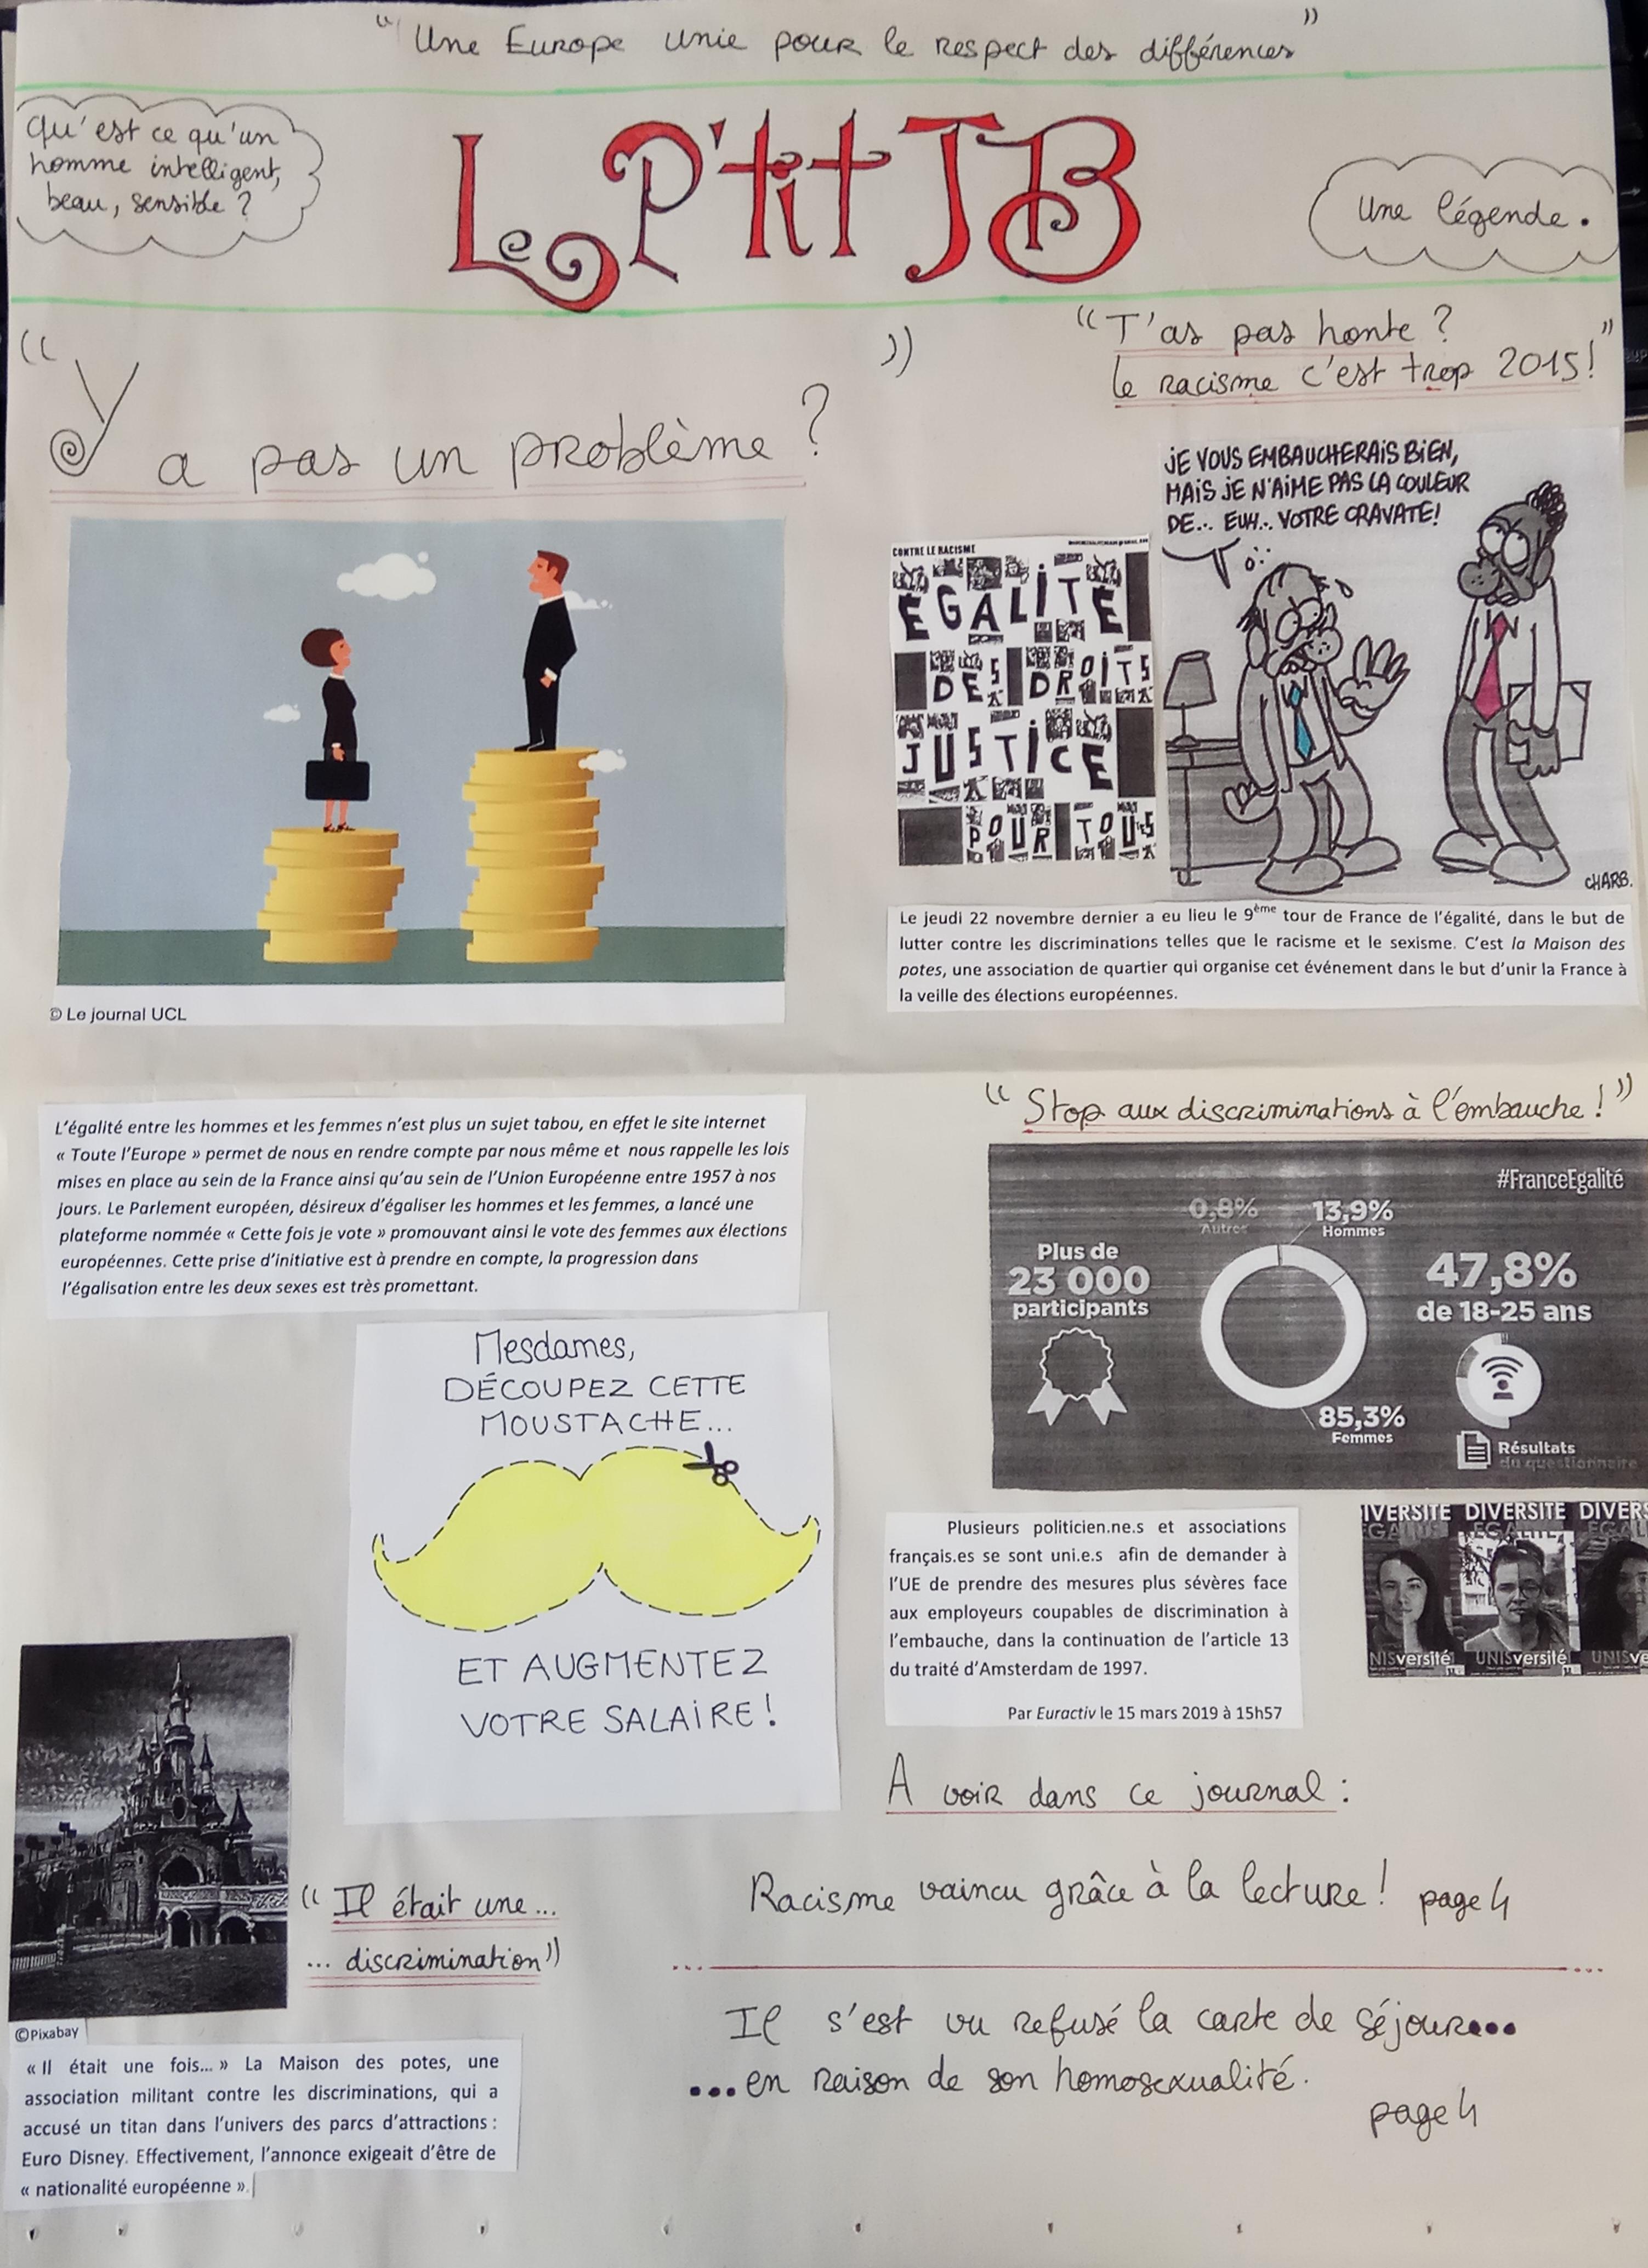 "Une Europe unie pour le respect des différences"
Qu'est ce qu'un
homme intelligent,
beau, sensible ?
Le P'tit JB
Une légende.
"Y a pas un problème ?"
© Le journal UCL
"T'as pas honte ?
le racisme c'est trop 2015!"
CONTRE LE RACISME
ÉGALITÉ
DES DROITS
JUSTICE
POUR TOUTES
JE VOUS EMBAUCHERAIS BIEN,
MAIS JE N'AIME PAS LA COULEUR
DE... EUH... VOTRE CRAVATE!
CHARB.
Le jeudi 22 novembre dernier a eu lieu le 9ème tour de France de l'égalité, dans le but de
lutter contre les discriminations telles que le racisme et le sexisme. C'est la Maison des
potes, une association de quartier qui organise cet événement dans le but d'unir la France à
la veille des élections européennes.
L'égalité entre les hommes et les femmes n'est plus un sujet tabou, en effet le site internet
« Toute l'Europe » permet de nous en rendre compte par nous même et nous rappelle les lois
mises en place au sein de la France ainsi qu'au sein de l'Union Européenne entre 1957 à nos
jours. Le Parlement européen, désireux d'égaliser les hommes et les femmes, a lancé une
plateforme nommée « Cette fois je vote » promouvant ainsi le vote des femmes aux élections
européennes. Cette prise d'initiative est à prendre en compte, la progression dans
l'égalisation entre les deux sexes est très promettant.
Mesdames,
DÉCOUPEZ CETTE
MOUSTACHE...
ET AUGMENTEZ
VOTRE SALAIRE !
"Stop aux discriminations à l'embauche !"
#FranceEgalité
0,8%
Autres
13,9%
Hommes
Plus de
23 000
participants
47,8%
de 18-25 ans
85,3%
Femmes
Résultats
du questionnaire
IVERSITE DIVERSITE DIVERS
EGALITE
NISversité UNISversité UNISve
Plusieurs politicien.ne.s et associations
français.es se sont uni.e.s afin de demander à
l'UE de prendre des mesures plus sévères face
aux employeurs coupables de discrimination à
l'embauche, dans la continuation de l'article 13
du traité d'Amsterdam de 1997.
Par Euractiv le 15 mars 2019 à 15h57
"Il était une...
... discrimination"
©Pixabay
« Il était une fois... » La Maison des potes, une
association militant contre les discriminations, qui a
accusé un titan dans l'univers des parcs d'attractions :
Euro Disney. Effectivement, l'annonce exigeait d'être de
« nationalité européenne ».
A voir dans ce journal :
Racisme vaincu grâce à la lecture ! page 4
Il s'est vu refusé la carte de séjour...
...en raison de son homosexualité.
page 4